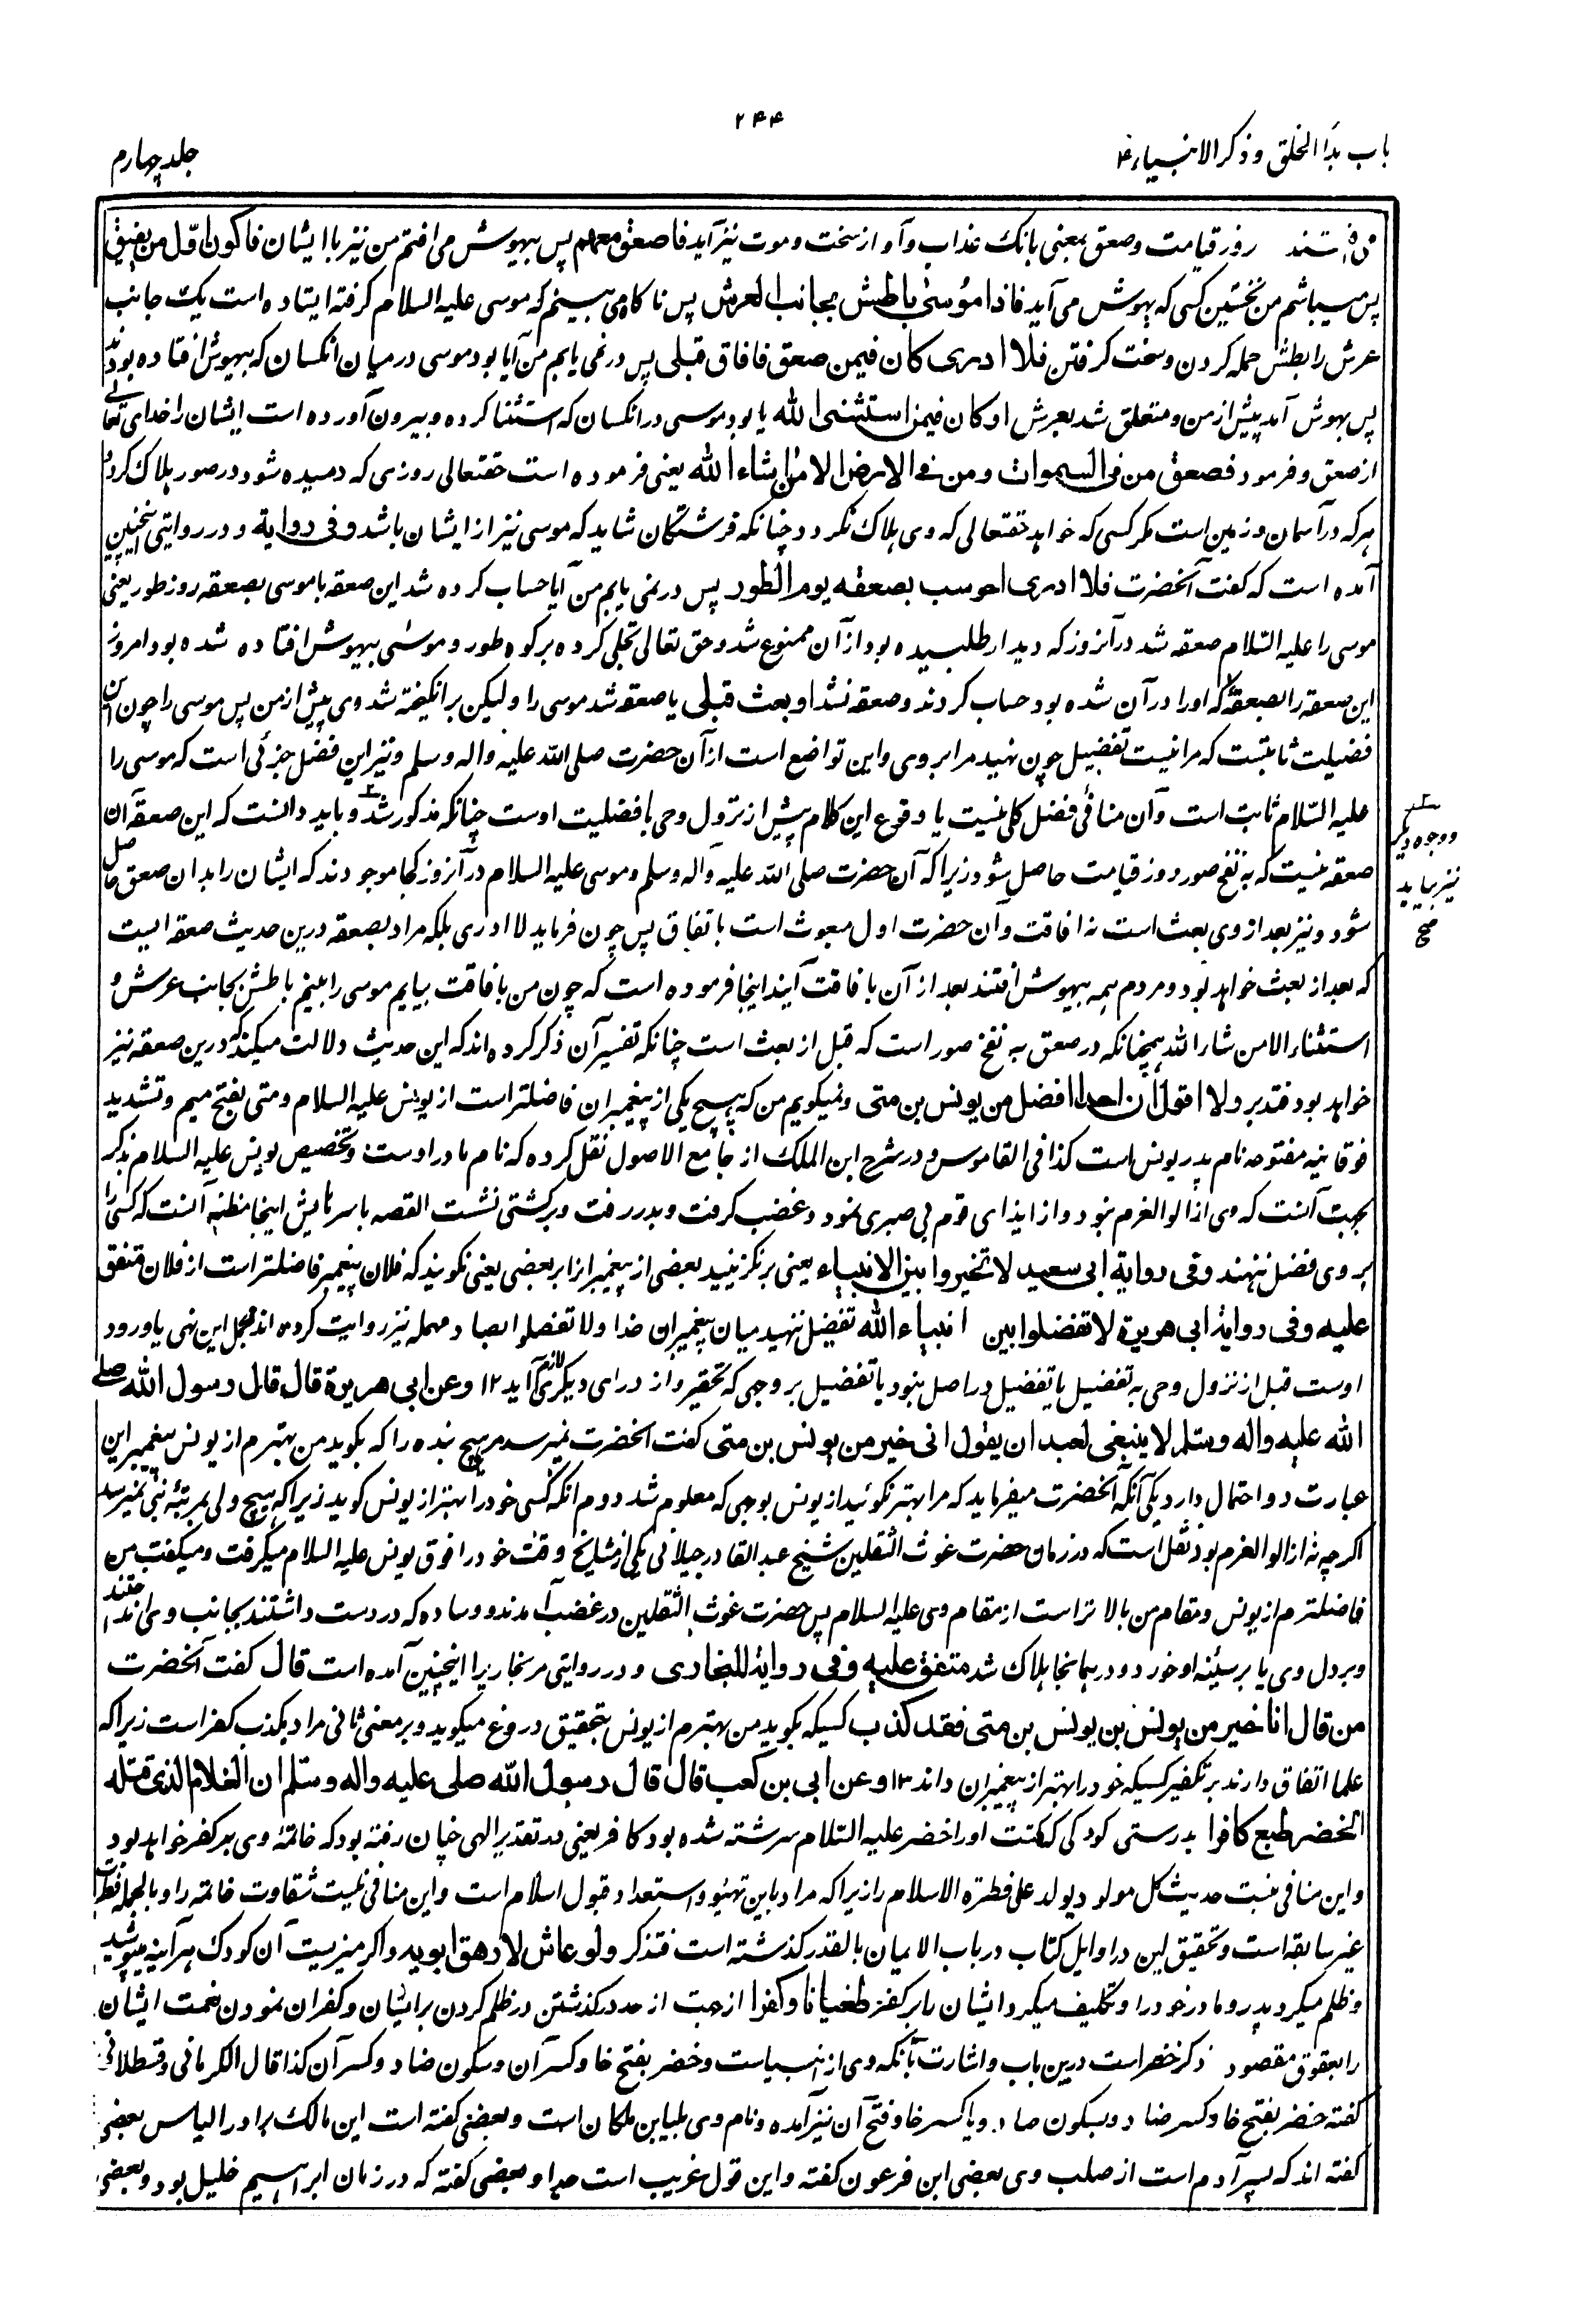 ۲۴۴
باب بدأ الخلق و ذکر الانبیاء
جلد چهارم
روز قیامت و صعق بمعنی بانگ عذاب و آواز سخت و موت نیز آید فاصعق معهم پس بیهوش می افتم من نیز با ایشان فاکون اول من یفیق
پس میباشم من نخستین کسی که بهوش می آید فاذا موسی باطش بجانب العرش پس ناگاه می بینم که موسی علیه السلام گرفته ایستاده است یک جانب
عرش را بطش حمله کردن و سخت گرفتن فلا ادری کان فیمن صعق فافاق قبلی پس در نمی یابم من آیا بود موسی در میان آنکسان که بیهوش افتاده بودند
پس بهوش آمد پیش از من و متعلق شد بعرش او کان فیمن استثنی الله یا بود موسی در آنکسان که استثنا کرده و بیرون آورده است ایشان را خدای تعالی
از صعق و فرمود فصعق من فی السموات و من فی الارض الا من شاء الله یعنی فرموده است حقتعالی روزی که دمیده شود در صور هلاک گردد
هر که در آسمان و زمین است مگر کسی که خواهد حقتعالی که وی هلاک نگردد چنانکه فرشتگان شاید که موسی نیز از ایشان باشد و فی روایة و در روایتی اینچنین
آمده است که گفت آنحضرت فلا ادری احوسب بصعقه یوم الطور پس در نمی یابم من آیا حساب کرده شد این صعقه با موسی بصعقه روز طور یعنی
موسی را علیه السلام صعقه شد در آنروز که دیدار طلبیده بود از آن ممنوع شد و حق تعالی تجلی کرده بر کوه طور و موسی بیهوش افتاده شده بود امروز
این صعقه را بصعقه که او را در آن شده بود حساب کردند و صعقه نشد او بعث قبلی یا صعقه شد موسی را ولیکن برانگیخته شد وی پیش از من پس موسی را چون این
فضیلت ثابتست که مرا نیست تفضیل چون نهید مرا بر وی و این تواضع است از آن حضرت صلی الله علیه و اله و سلم و نیز این فضل جزئی است که موسی را
علیه السلام ثابت است و آن منافی فضل کلی نیست یا وقوع این کلام پیش از نزول وحی بافضلیت اوست چنانکه مذکور شد و باید دانست که این صعقه آن
و وجوه دیگر
نیز بیاید
صح
صعقه نیست که به نفخ صور روز قیامت حاصل شود زیرا که آن حضرت صلی الله علیه و آله و سلم و موسی علیه السلام در آنروز کجا موجودند که ایشان را بدان صعق حاصل
شود و نیز بعد از وی بعث است نه افاقت و آن حضرت اول مبعوث است باتفاق پس چون فرماید لا ادری بلکه مراد بصعقه درین حدیث صعقه ایست
که بعد از بعث خواهد بود و مردم همه بیهوش افتند بعد از آن با فاقت آیند اینجا فرموده است که چون من بافاقت بیایم موسی را بینم باطش بجانب عرش و
استثناء الا من شاء الله همچنانکه در صعق به نفخ صور است که قبل از بعث است چنانکه تفسیر آن ذکر کرده اند که این حدیث دلالت میکند که درین صعقه نیز
خواهد بود فتدبر و لا اقول ان احدا افضل من یونس بن متی و نمیگویم من که هیچ یکی از پیغمبران فاضلتر است از یونس علیه السلام و متی بفتح میم و تشدید
فوقانیه مفتوحه نام پدر یونس است کذا فی القاموس و در شرح ابن الملک از جامع الاصول نقل کرده که نام مادر اوست و تخصیص یونس علیه السلام بذکر
بجهت آنست که وی از الوالعزم نبود و از ایذای قوم بی صبری نمود و غضب گرفت و بدر رفت و بر کشتی نشست القصه باسر تایش اینجا مظنه آنست که کسی را
بر وی فضل ننهند و فی روایة ابی سعید لا تخیروا بین الانبیاء یعنی بر نگزینید بعضی از پیغمبران را بر بعضی یعنی نگویند که فلان پیغمبر فاضلتر است از فلان متفق
علیه و فی روایة ابی هریرة لا تفضلوا بین انبیاء الله تفضیل ننهید میان پیغمبران خدا و لا تفصلوا بصاد مهمله نیز روایت کرده اند محمل این نهی یا ورود
اوست قبل از نزول وحی به تفضیل یا تفضیل در اصل نبود یا تفضیل بر وجهی که تحقیر و از درای دیگری لازم آید ۱۲ و عن ابی هریرة قال قال رسول الله صلی
الله علیه واله وسلم لا ینبغی لعبد ان یقول انی خیر من یونس بن متی گفت آنحضرت نمیرسد مر هیچ بنده را که بگوید من بهترم از یونس پیغمبر این
عبارت دو احتمال دارد یکی آنکه آنحضرت میفرماید که مرا بهتر نگوئید از یونس بوجهی که معلوم شد دوم آنکه کسی خود را بهتر از یونس گوید زیرا که هیچ ولی بمرتبهٔ نبی نمیرسد
اگر چه نه از الوالعزم بود نقل است که در زمان حضرت غوث الثقلین شیخ عبد القادر جیلانی یکی از مشایخ وقت خود را فوق یونس علیه السلام میگرفت و میگفت من
فاضلترم از یونس و مقام من بالاتر است از مقام وی علیه السلام پس حضرت غوث الثقلین در غضب آمدند و وساده که در دست داشتند بجانب وی انداختند
و بر دل وی یا بر سینهٔ او خورد و در همانجا هلاک شد متفق علیه و فی روایة للبخاری و در روایتی مر بخاری را اینچنین آمده است قال گفت آنحضرت
من قال انا خیر من یونس بن یونس بن متی فقد کذب کسیکه بگوید من بهترم از یونس بتحقیق دروغ میگوید و بر معنی ثانی مراد بکذب کفر است زیرا که
علما اتفاق دارند بر تکفیر کسیکه خود را بهتر از پیغمبران داند ۱۳ و عن ابی بن کعب قال قال رسول الله صلی علیه واله وسلم ان الغلام الذی قتله
الخضر طبع کافرا بدرستی کودکی که کشت او را خضر علیه السلام سرشته شده بود کافر یعنی در تقدیر الهی چنان رفته بود که خاتمهٔ وی بر کفر خواهد بود
و این منافی نیست حدیث کل مولود یولد علی فطرة الاسلام را زیرا که مراد باین تهیؤ و استعداد قبول اسلام است و این منافی نیست شقاوت خاتمه را و بالجمله فطرت
غیر سابقه است و تحقیق این در اوایل کتاب در باب الایمان بالقدر گذشته است فتذکر و لو عاش لارهق ابویه و اگر میزیست آن کودک هر آینه میپوشید
و ظلم میکرد پدر و مادر خود را و تکلیف میکرد ایشان را بر کفر طغیانا و کفرا از جهت از حد در گذشتن در ظلم کردن بر ایشان و کفران نمودن نعمت ایشان
را بعقوق مقصود ذکر خضر است درین باب و اشارت بآنکه وی از انبیاست و خضر بفتح خا و کسر آن و سکون ضاد و کسر آن کذا قال الکرمانی و قسطلانی
گفته خضر بفتح خا و کسر ضاد و بسکون ضاد و با کسر خا و فتح آن نیز آمده و نام وی بلیا بن ملکان است و بعضی گفته است ابن مالک برادر الیاس بعضی
گفته اند که پسر آدم است از صلب وی بعضی ابن فرعون گفته و این قول غریب است جدا و بعضی گفته که در زمان ابراهیم خلیل بود و بعضی